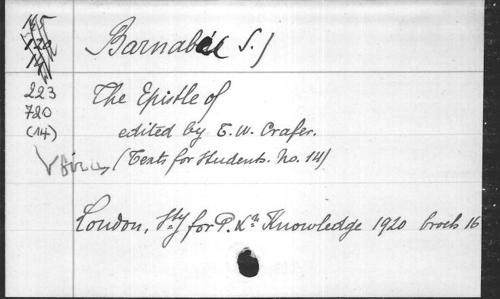 Barnabae (S.)
223
The Epistle of
720
edited by T. W. Crafer.
(14)
(Texts for Students. No. 14)
London, Sty for P. Xn Knowledge 1920 broch 16